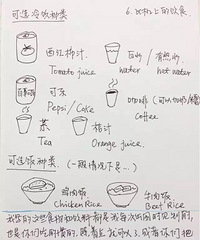 可选冷饮种类
6. 飞机上的饮食
西红柿汁
Tomato juice
白水 / 有热水
water / hot water
百事可乐
可乐
Pepsi / Coke
咖啡 (可以加奶/糖)
coffee
茶
Tea
桔汁
Orange juice
可选饭种类 (一般情况下是…)
鸡肉饭
Chicken Rice
牛肉饭
Beef Rice
我写的这些食物和饮料都是我每次回国可见到的,